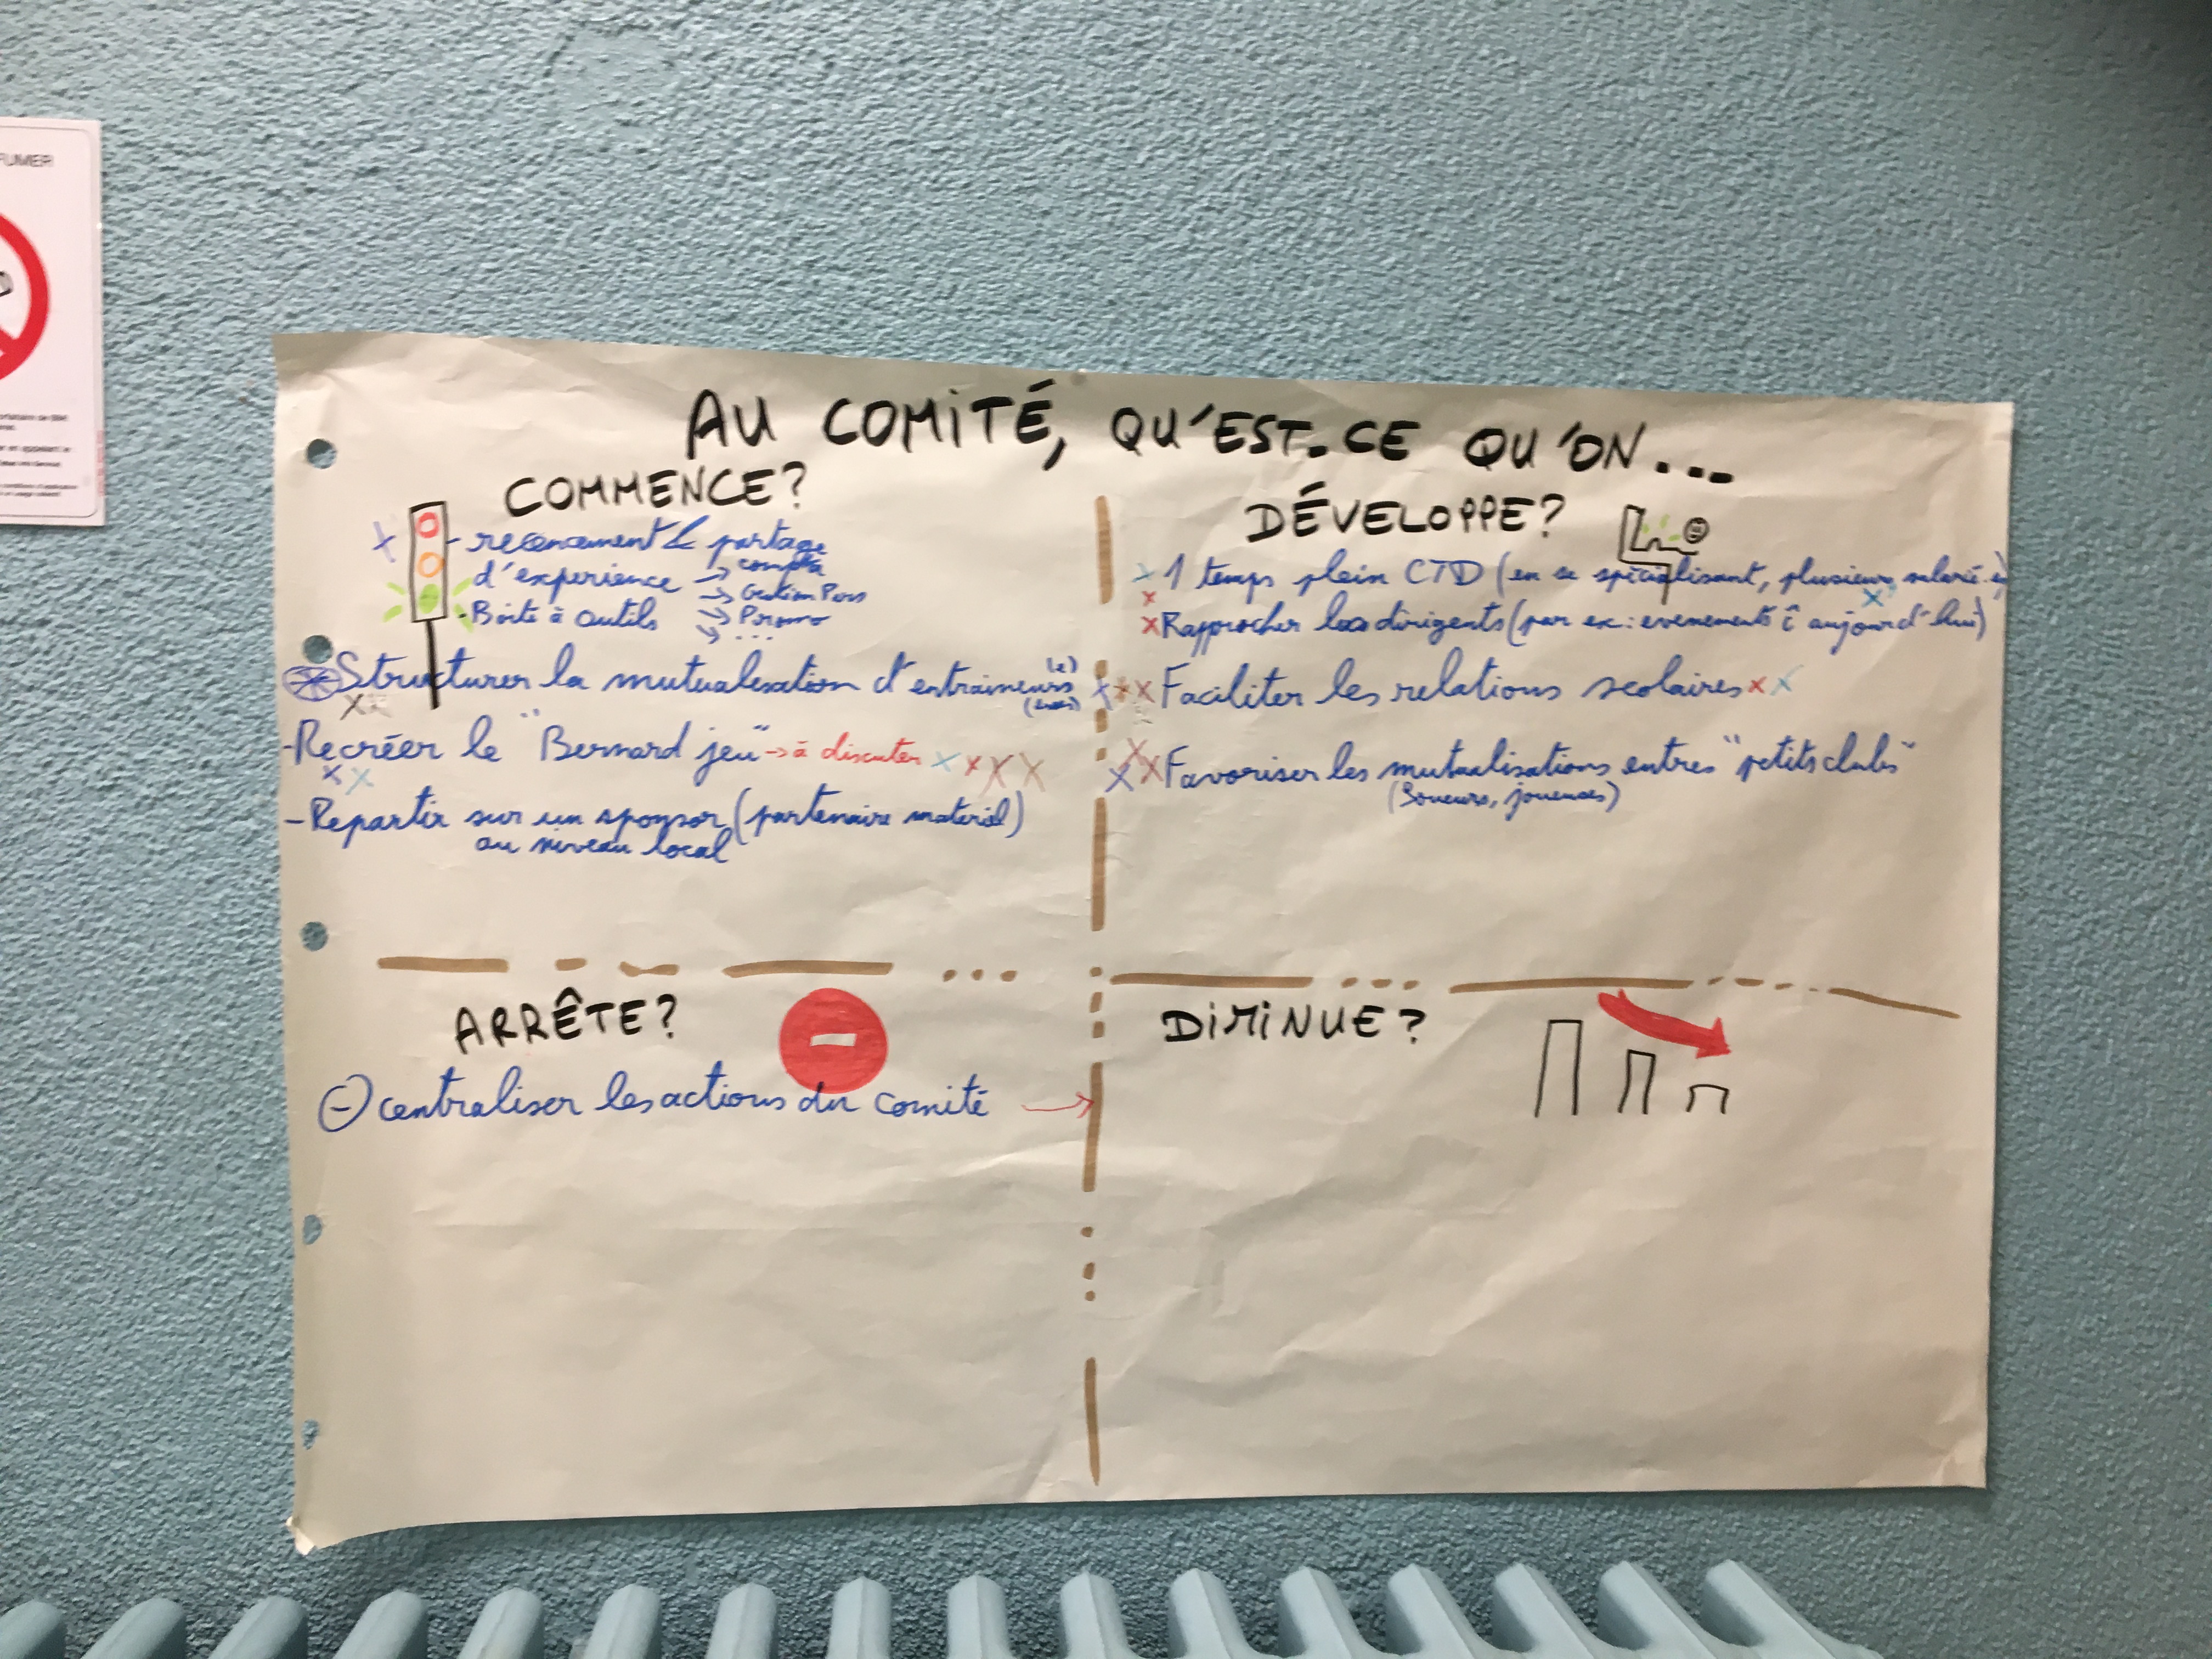 FUMER
AU COMITÉ, QU'EST-CE QU'ON...
COMMENCE?
- recencement & partage
d'experience → compta
→ Gestion Pers
- Boite à outils → Promo
→ ...
Structurer la mutualisation d'entraineurs
- Recréer le "Bernard jeu" → à discuter
- Repartir sur un sponsor (partenaire materiel)
au niveau local
DÉVELOPPE?
1 temps plein CTD (en se spécialisant, plusieurs salarié.es)
Rapprocher les dirigents (par ex: evenements c aujourd'hui)
Faciliter les relations scolaires
Favoriser les mutualisations entres "petits clubs"
(Joueurs, joueuses)
ARRÊTE?
- centraliser les actions du comité →
DiMiNUE?